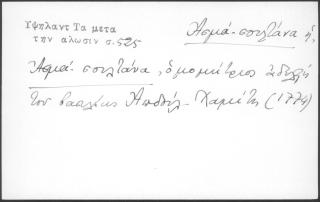 Υψηλαντ Τα μετα
την αλωσιν σ.525
Ἀσμά-σουλτάνα ἡ,
Ἀσμά-σουλτάνα, ὁμομήτριος ἀδελφή
του βασιλέως Ἀβδούλ-Χαμίτη (1774)